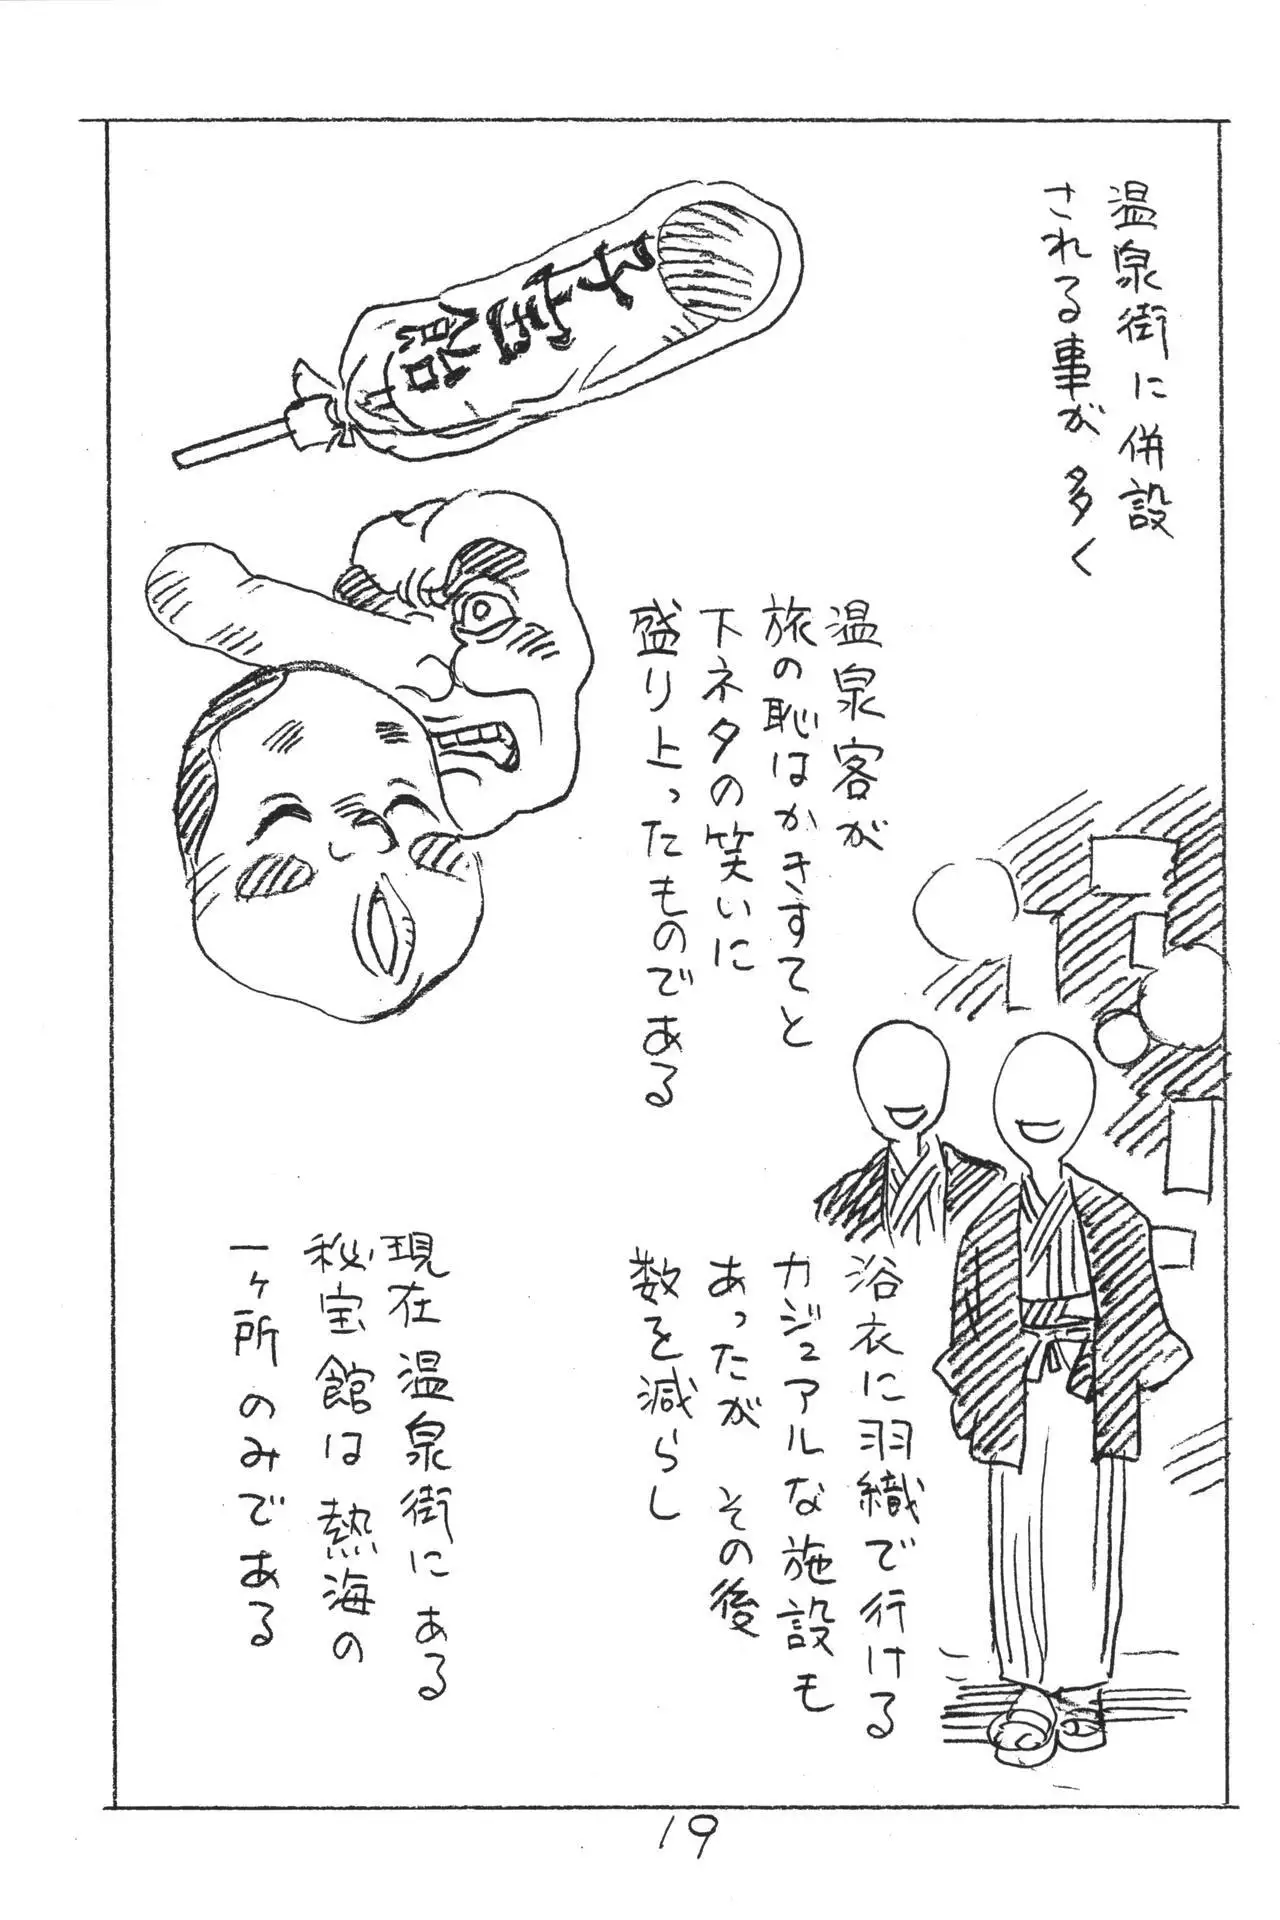 温泉街に併設
される事が多く
温泉客が
旅の恥はかきすてと
下ネタの笑いに
盛り上ったものである
浴衣に羽織で行ける
カジュアルな施設も
あったが その後
数を減らし
現在 温泉街にある
秘宝館は熱海の
一ヶ所のみである
19